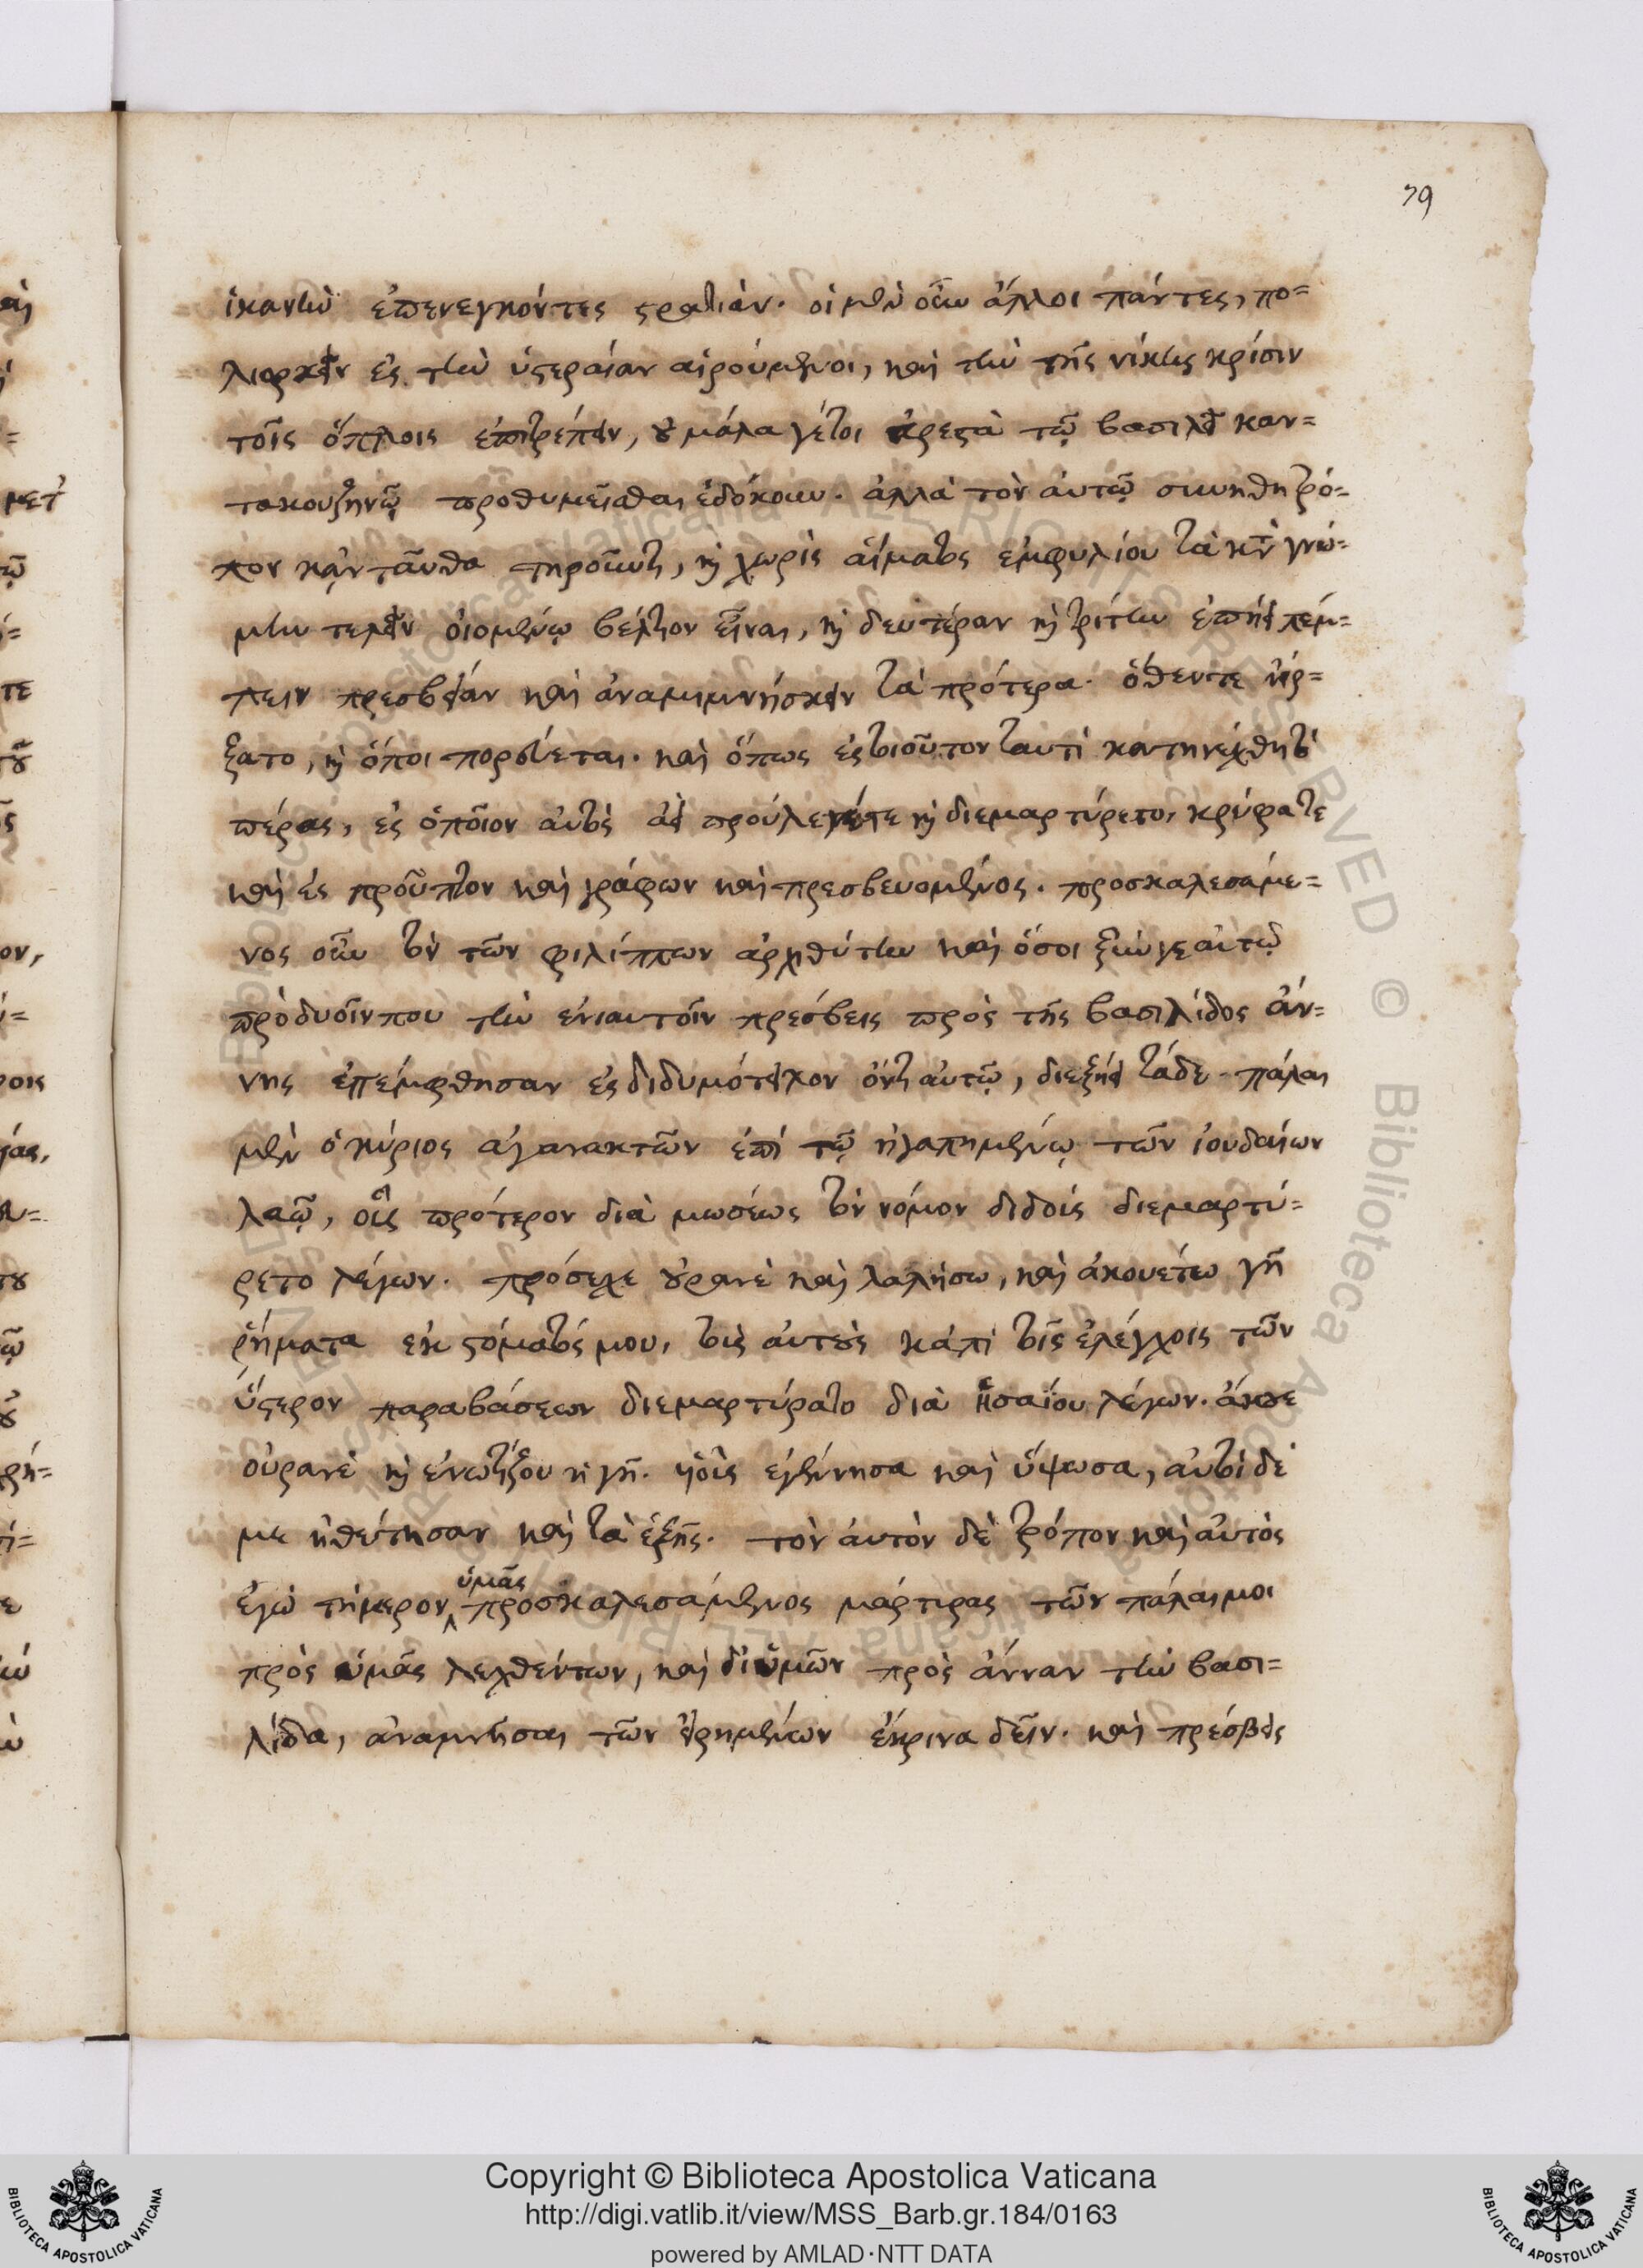 79
ἱκανὴν ἐπενεγκόντες στρατιάν. οἱ μὲν οὖν ἄλλοι πάντες, πο=
λιορκεῖν ἐς τὴν ὑστεραίαν αἱρούμενοι, καὶ τὴν τῆς νίκης κρίσιν
τοῖς ὅπλοις ἐπιτρέπειν, οὐ μάλα γέτοι ἀρεστὰ τῷ βασιλεῖ καν=
τακουζηνῷ προθυμεῖσθαι ἐδόκουν. ἀλλὰ τὸν αὐτῷ συνήθη τρό=
πον κᾀνταῦθα τηροῦντι, καὶ χωρὶς αἵματος ἐμφυλίου τὰ κατὰ γνώ=
μην τελεῖν οἰομένῳ βέλτιον εἶναι, καὶ δευτέραν καὶ τρίτην ἐπῄει πέμ=
πειν πρεσβείαν καὶ ἀναμιμνήσκειν τὰ πρότερα. ὅθεν τε ἤρ=
ξατο, καὶ ὅποι πορεύεται. καὶ ὅπως ἐς τοιοῦτον ταυτὶ κατηνέχθη τὸ
πέρας, ἐς ὁποῖον αὐτὸς ἀεὶ προὔλεγέ τε καὶ διεμαρτύρετο, κρύφα τε
καὶ ἐς προὖπτον καὶ γράφων καὶ πρεσβευόμενος. προσκαλεσάμε=
νος οὖν τὸν τῶν φιλίππων ἀρχιθύτην καὶ ὅσοι ξύν γε αὐτῷ
πρὸ δυοῖν που τὴν ἐνιαυτοῖν πρέσβεις πρὸς τῆς βασιλίδος ἄν=
νης ἐπέμφθησαν ἐς διδυμότειχον ὄντι αὐτῷ, διεξῄει τάδε. πάλαι
μὲν ὁ κύριος ἀγανακτῶν ἐπὶ τῷ ἠγαπημένῳ τῶν ἰουδαίων
λαῷ, οἷς πρότερον διὰ μωσέως τὸν νόμον διδοὺς διεμαρτύ=
ρετο λέγων. πρόσεχε οὐρανὲ καὶ λαλήσω, καὶ ἀκουέτω γῆ
ῥήματα ἐκ στόματός μου, τοὺς αὐτοὺς κἀπὶ τοῖς ἐλέγχοις τῶν
ὕστερον παραβάσεων διεμαρτύρατο διὰ ἡσαΐου λέγων. ἄκουε
οὐρανὲ καὶ ἐνωτίζου ἡ γῆ. υἱοὺς ἐγέννησα καὶ ὕψωσα, αὐτοὶ δέ
με ἠθέτησαν καὶ τὰ ἑξῆς. τὸν αὐτὸν δὲ τρόπον καὶ αὐτὸς
ἐγὼ τήμερον ὑμᾶς προσκαλεσάμενος μάρτυρας τῶν πάλαι μοι
πρὸς ὑμᾶς λεχθέντων, καὶ δι' ὑμῶν πρὸς ἄνναν τὴν βασι=
λίδα, ἀναμνῆσαι τῶν εἰρημένων ἔκρινα δεῖν. καὶ πρέσβεις
Copyright © Biblioteca Apostolica Vaticana
http://digi.vatlib.it/view/MSS_Barb.gr.184/0163
powered by AMLAD·NTT DATA